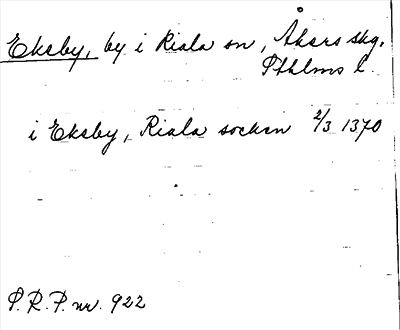 Ekeby, by i Riala sn, Åkers skg.
Sthlms l.
i Ekeby, Riala socken 2/3 1370
P.R.P. nr. 922